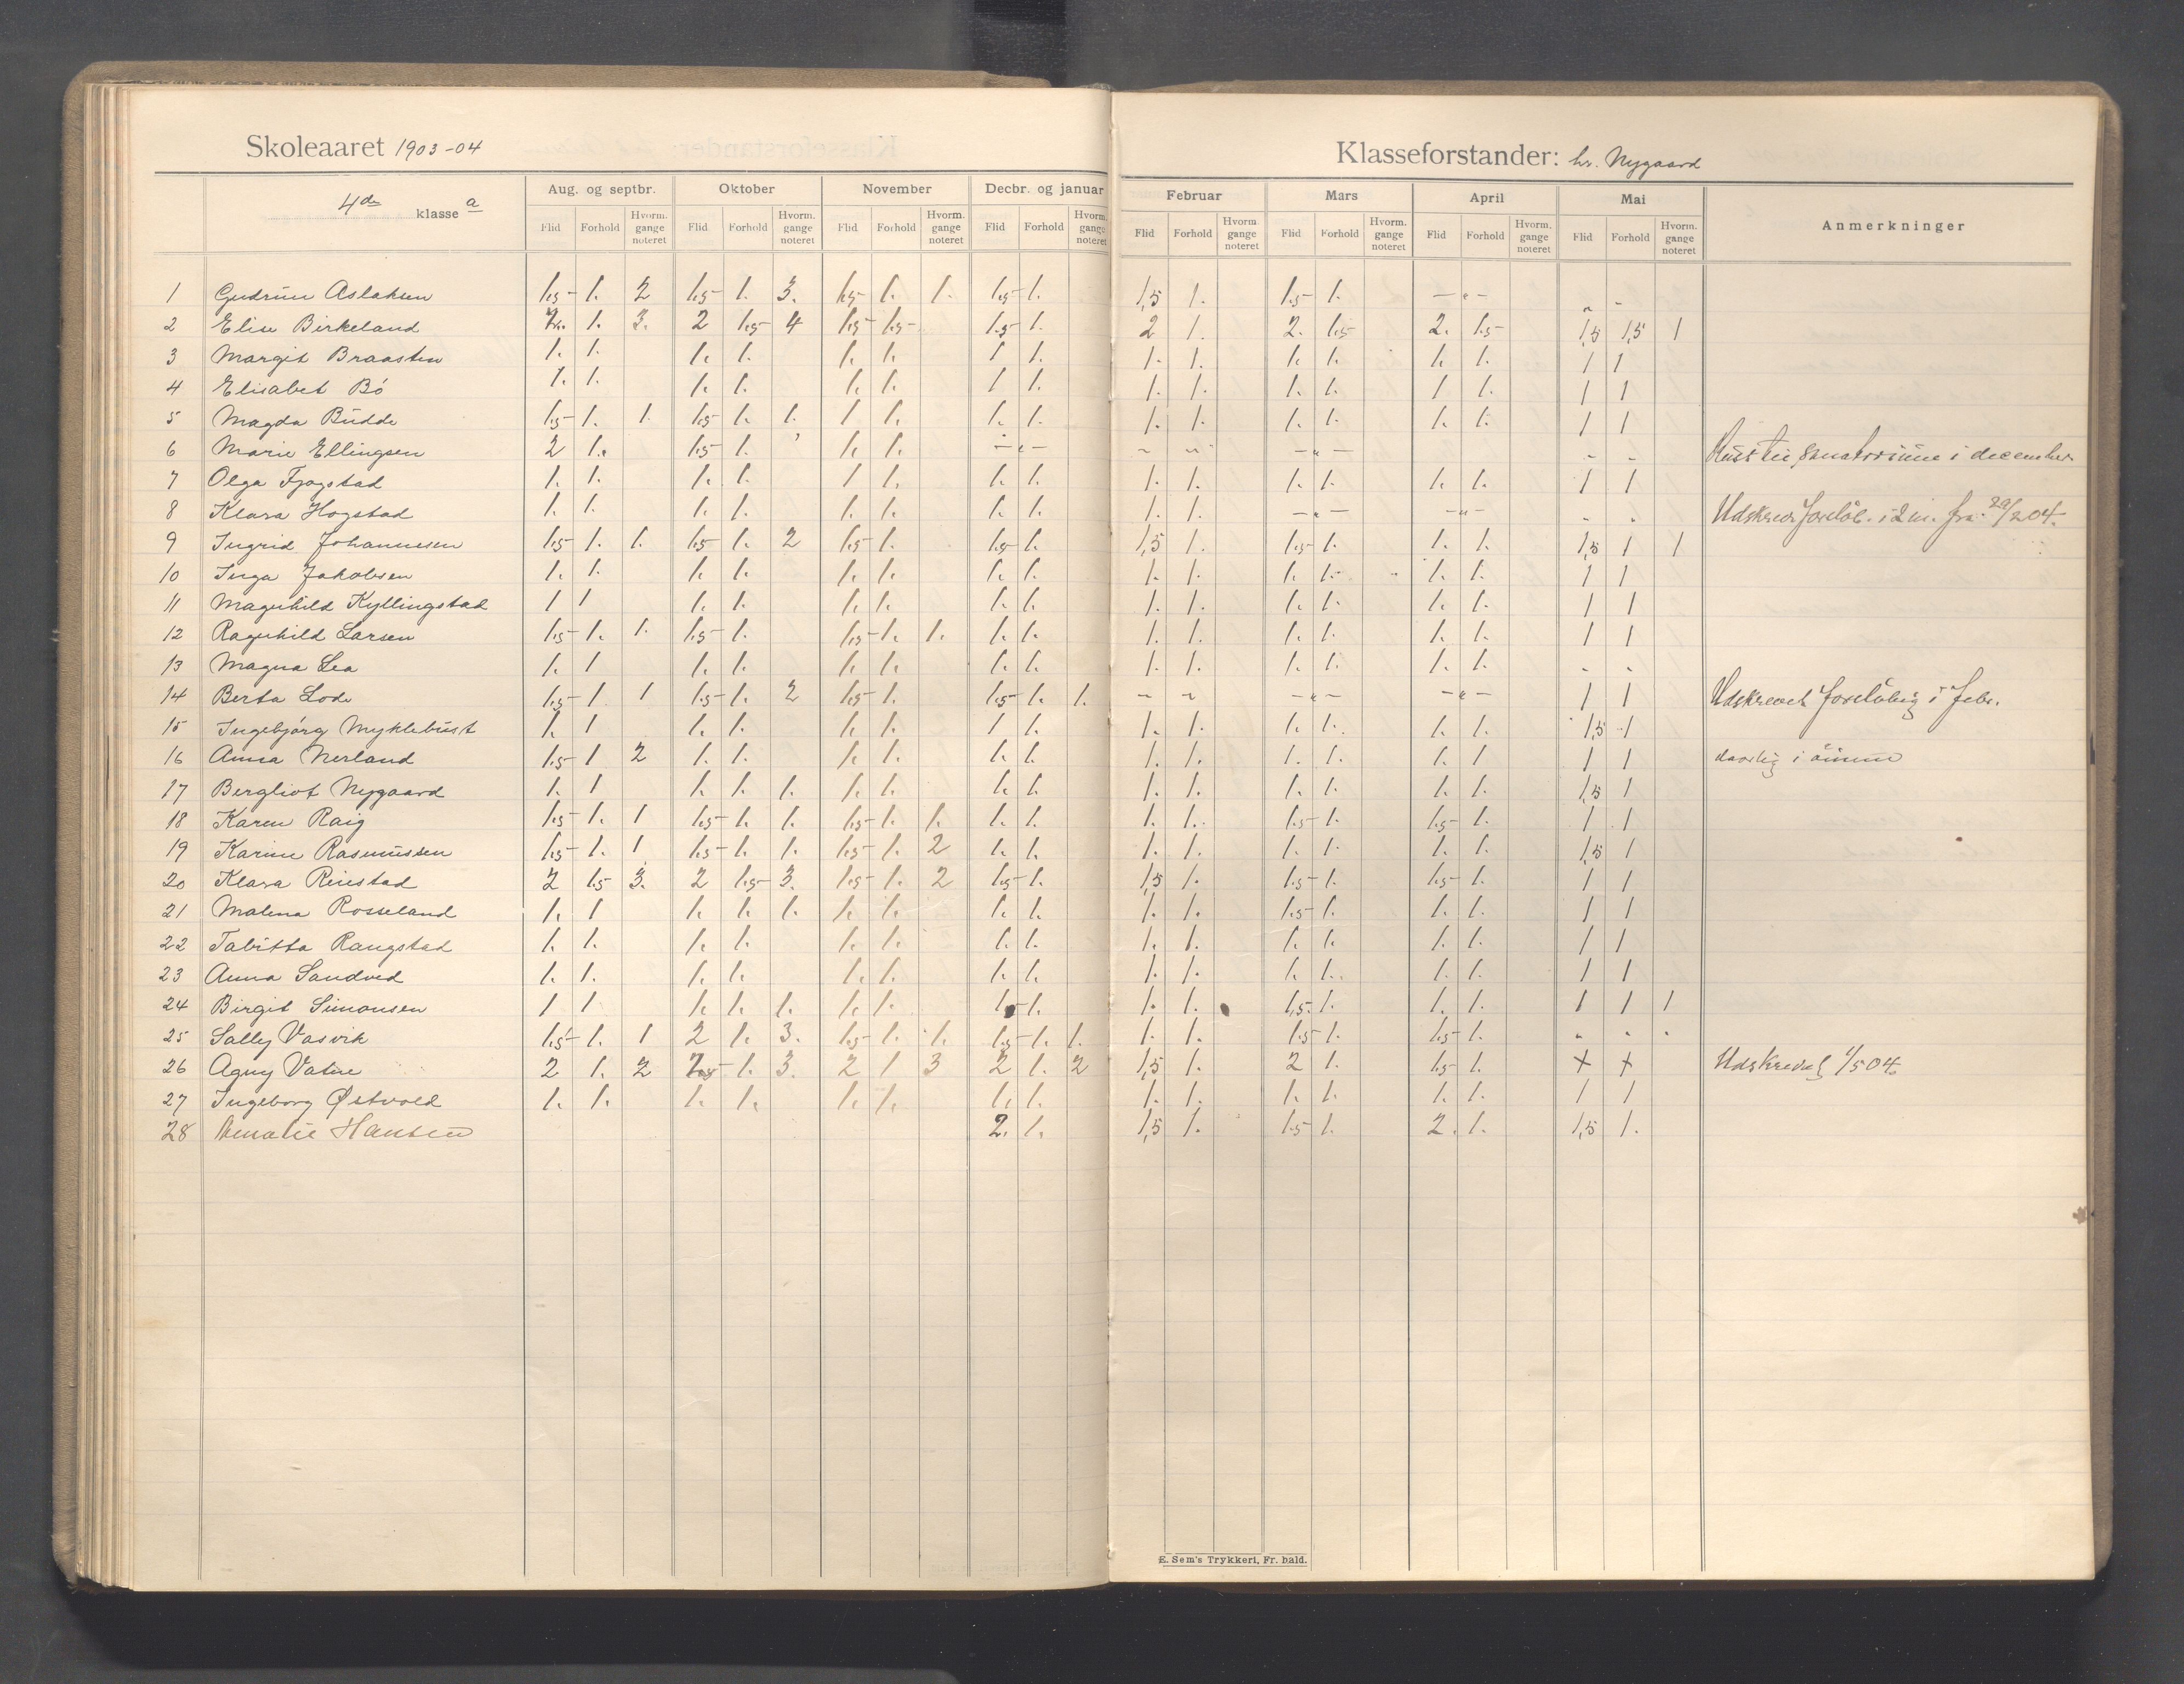 Skoleaaret 1903-04
Klasseforstander: hr. Nygaard
4de klasse a
Aug. og septbr. Oktober November Decbr. og januar Februar Mars April Mai Anmerkninger
Flid Forhold Hvorm. gange noteret Flid Forhold Hvorm. gange noteret Flid Forhold Hvorm. gange noteret Flid Forhold Hvorm. gange noteret Flid Forhold Hvorm. gange noteret Flid Forhold Hvorm. gange noteret Flid Forhold Hvorm. gange noteret Flid Forhold Hvorm. gange noteret
1 Gudrun Aslaksen 1.5 1. 2 1.5 1. 3. 1.5 1. 1. 1.5 1. 1,5 1. 1.5 1. - " -
2 Elise Birkeland 1. 3. 2 1.5 4 1.5 1.5 1.5 1. 2 1. 2. 1.5 2. 1.5 1,5 1,5 1
3 Margit Braasten 1. 1. 1. 1. 1. 1. 1 1. 1. 1. 1. 1. 1. 1. 1 1
4 Elisabet Bö 1. 1. 1. 1. 1. 1. 1 1. 1. 1. 1. 1. 1 1. 1 1
5 Magda Budde 1.5 1. 1. 1.5 1. 1. 1 1. 1. 1. 1. 1. 1. 1. 1. 1. 1 1
6 Marie Ellingsen 2 1. 1.5 1. 1. 1. - " - - " - sanatorium i december
7 Olga Fjogstad 1. 1. 1. 1. 1 1. 1. 1. 1. 1. 1. 1. 1. 1. 1 1
8 Klara Hogstad 1. 1. 1. 1. 1. 1. 1. 1. 1. 1. - " - - " - Udskrevet foreløb. i 2 m. fra 29/2 04.
9 Ingrid Johannesen 1.5 1. 1. 1.5 1. 2 1.5 1. 1.5 1. 1,5 1. 1.5 1. 1. 1. 1,5 1 1
10 Inga Jakobsen 1. 1. 1. 1. 1. 1. 1. 1. 1. 1. 1. 1. 1. 1. 1 1
11 Magnhild Kyllingstad 1 1 1. 1. 1. 1. 1. 1. 1. 1. 1. 1. 1. 1. 1 1
12 Ragnhild Larsen 1.5 1. 1. 1.5 1. 1.5 1. 1. 1. 1. 1. 1. 1. 1. 1. 1. 1 1
13 Magna Lea 1. 1 1. 1. 1. 1. 1. 1. 1. 1. 1. 1. 1. 1. - -
14 Berta Lode 1.5 1 1 1.5 1. 2 1.5 1. 1.5 1. 1. - - - " - - " - 1 1 Udskrevet foreløbig i febr.
15 Ingebjørg Myklebust 1. 1 1. 1. 1. 1. 1 1. 1. 1. 1. 1. 1. 1. 1,5 1
16 Anna Nerland 1.5 1 2 1. 1. 1. 1. 1. 1. 1. 1. 1. 1. 1. 1 1 1 daarlig i öinene
17 Bergliot Nygaard 1. 1 1. 1. 1. 1. 1. 1. 1. 1. 1. 1. 1. 1. 1. 1,5 1
18 Karen Raig 1.5 1. 1 1.5 1. 1. 1.5 1. 1. 1. 1. 1. 1. 1.5 1. 1.5 1. 1 1
19 Karine Rasmussen 1.5 1. 1 1.5 1. 1. 1.5 1. 2 1. 1. 1. 1. 1. 1. 1. 1. 1,5 1
20 Klara Riestad 2 1.5 3. 2 1.5 3. 1.5 1. 2 1.5 1. 1,5 1. 1.5 1. 1.5 1. 1 1
21 Malena Rosseland 1. 1 1. 1. 1. 1. 1. 1. 1. 1. 1. 1.5 1. 1. 1. 1 1
22 Tabitta Rangstad 1. 1. 1. 1. 1. 1. 1. 1. 1. 1. 1. 1. 1. 1. 1 1
23 Anna Sandved 1. 1. 1. 1. 1. 1. 1. 1. 1. 1. 1. 1. 1. 1. 1 1
24 Birgit Simonsen 1 1 1. 1. 1. 1. 1. 1.5 1. 1. 1. 1.5. 1. 1. 1. 1 1 1
25 Sally Vasvik 1.5 1. 1 2 1. 3. 1.5 1. 1. 1.5 1. 1. 1. 1. 1.5 1. 1.5 1. " " "
26 Agny Vatne 2 1. 2 1. 3. 2 1 3 2 1. 2 1,5 1. 2 1. 1.5 1. + + Udskrevet 1/5 04.
27 Ingeborg Østvold 1. 1. 1. 1. 1. 1. 1. 1. 1. 1. 1. 1. 1. 1. 1 1
28 Amalie Hansen 2. 1. 1,5 1. 1.5 1. 2. 1. 1,5 1.
E. Sem's Trykkeri, Fr. hald.